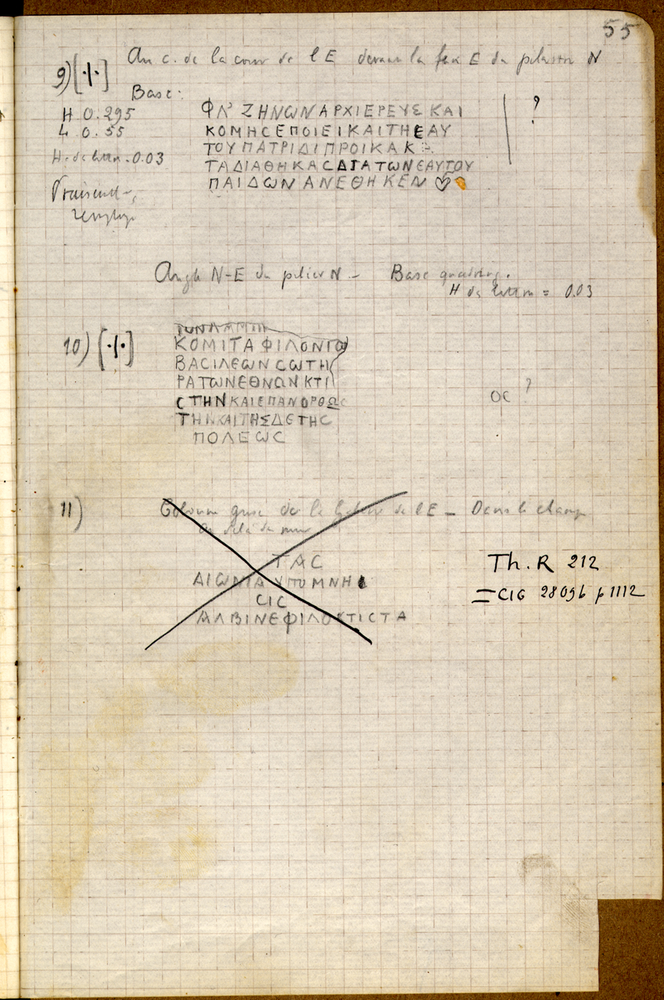 55
9) [·|·] Au c. de la cour de l E devant la face E du pilastre N
Base:
H 0.295
L 0.55
H. de lettres. 0.03
ΦΛ' ΖΗΝΩΝ ΑΡΧΙΕΡΕΥΣ ΚΑΙ
ΚΟΜΗϹ ΕΠΟΙΕΙ ΚΑΙ ΤΗ ΕΑΥ
ΤΟΥ ΠΑΤΡΙΔΙ ΠΡΟΙΚΑ Κ
ΤΑ ΔΙΑΘΗΚΑϹ ΔΙΑ ΤΩΝ ΕΑΥΤΟΥ
ΠΑΙΔΩΝ ΑΝΕΘΗΚΕΝ
?
Angle N-E du pilier N – Base
H de lettres = 0.03
10) [·|·]
ΚΟΜΙΤΑ ΦΙΛΟΝΙΩ
ΒΑϹΙΛΕΩΝ ϹΩΤΗ
ΡΑ ΤΩΝ ΕΘΝΩΝ ΚΤΙ
Ϲ ΤΗΝ ΚΑΙ ΕΠΑΝΟΡΘΩϹ
ΤΗΝ ΚΑΙ ΤΗΣΔΕ ΤΗϹ
ΠΟΛΕΩϹ
ΟϹ ?
11) Colonne de l E – Dans le champ
au delà du mur
ΤΑϹ
ΑΙΩΝΙΑ ΥΠΟΜΝΗ
ϹΙϹ
ΑΛΒΙΝΕ ΦΙΛΟΚΤΙϹΤΑ
Th. R 212
= CIG 2809b p 1112